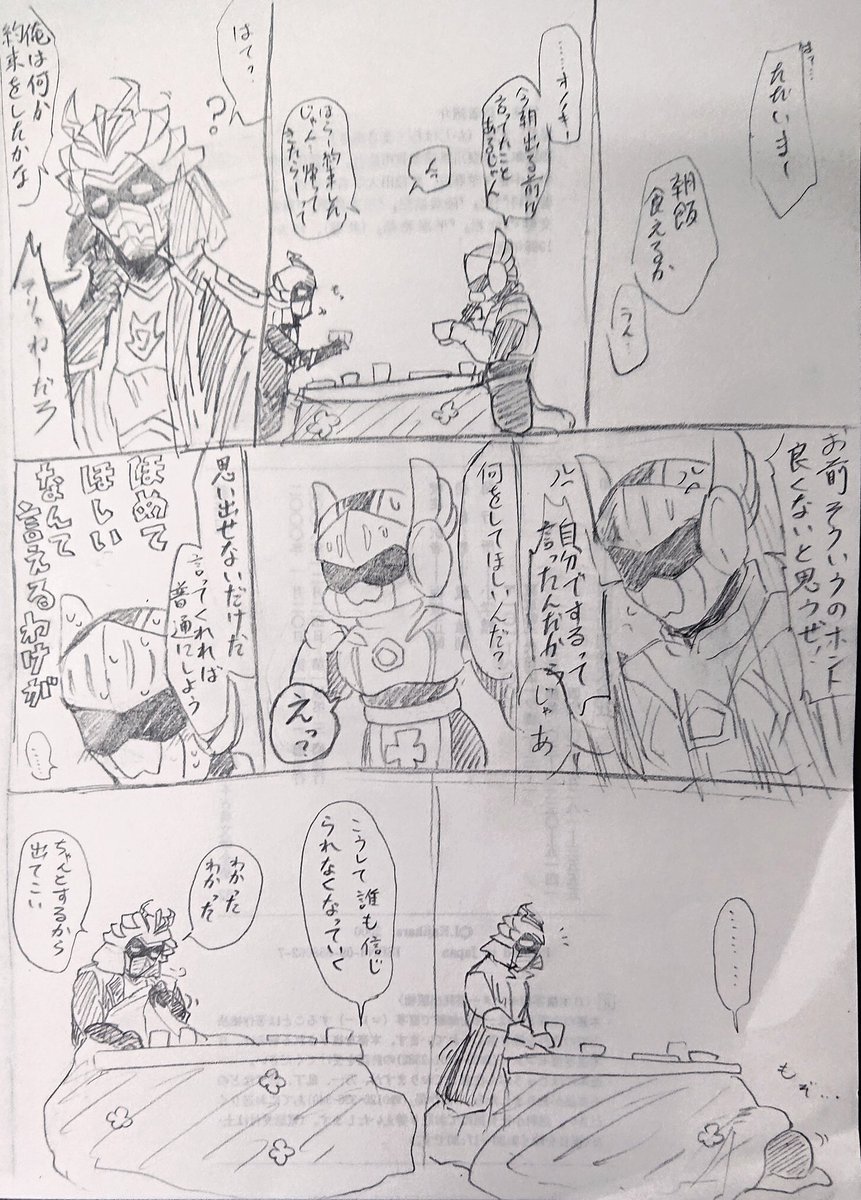 ただいまー
朝飯
食えるか
うん…
……オノキー
今朝出る前に
言ってたこと
あるじゃん
ん
ほらー約束した
じゃん…帰って
きたらーって
はて?
?
俺は何か
約束をしたかな
そりゃねーだろ
お前そういうのホント
良くないと思うぜ!
自分でするって
言ったんだからじゃあ
何をしてほしいんだ?
えっ?
思い出せないだけだ
言ってくれれば
普通にしよう
ほめて
ほしい
なんて
言えるわけが
……
………
もぞ…
こうして誰も信じ
られなくなっていく
わかった
わかった
ちゃんとするから
出てこい